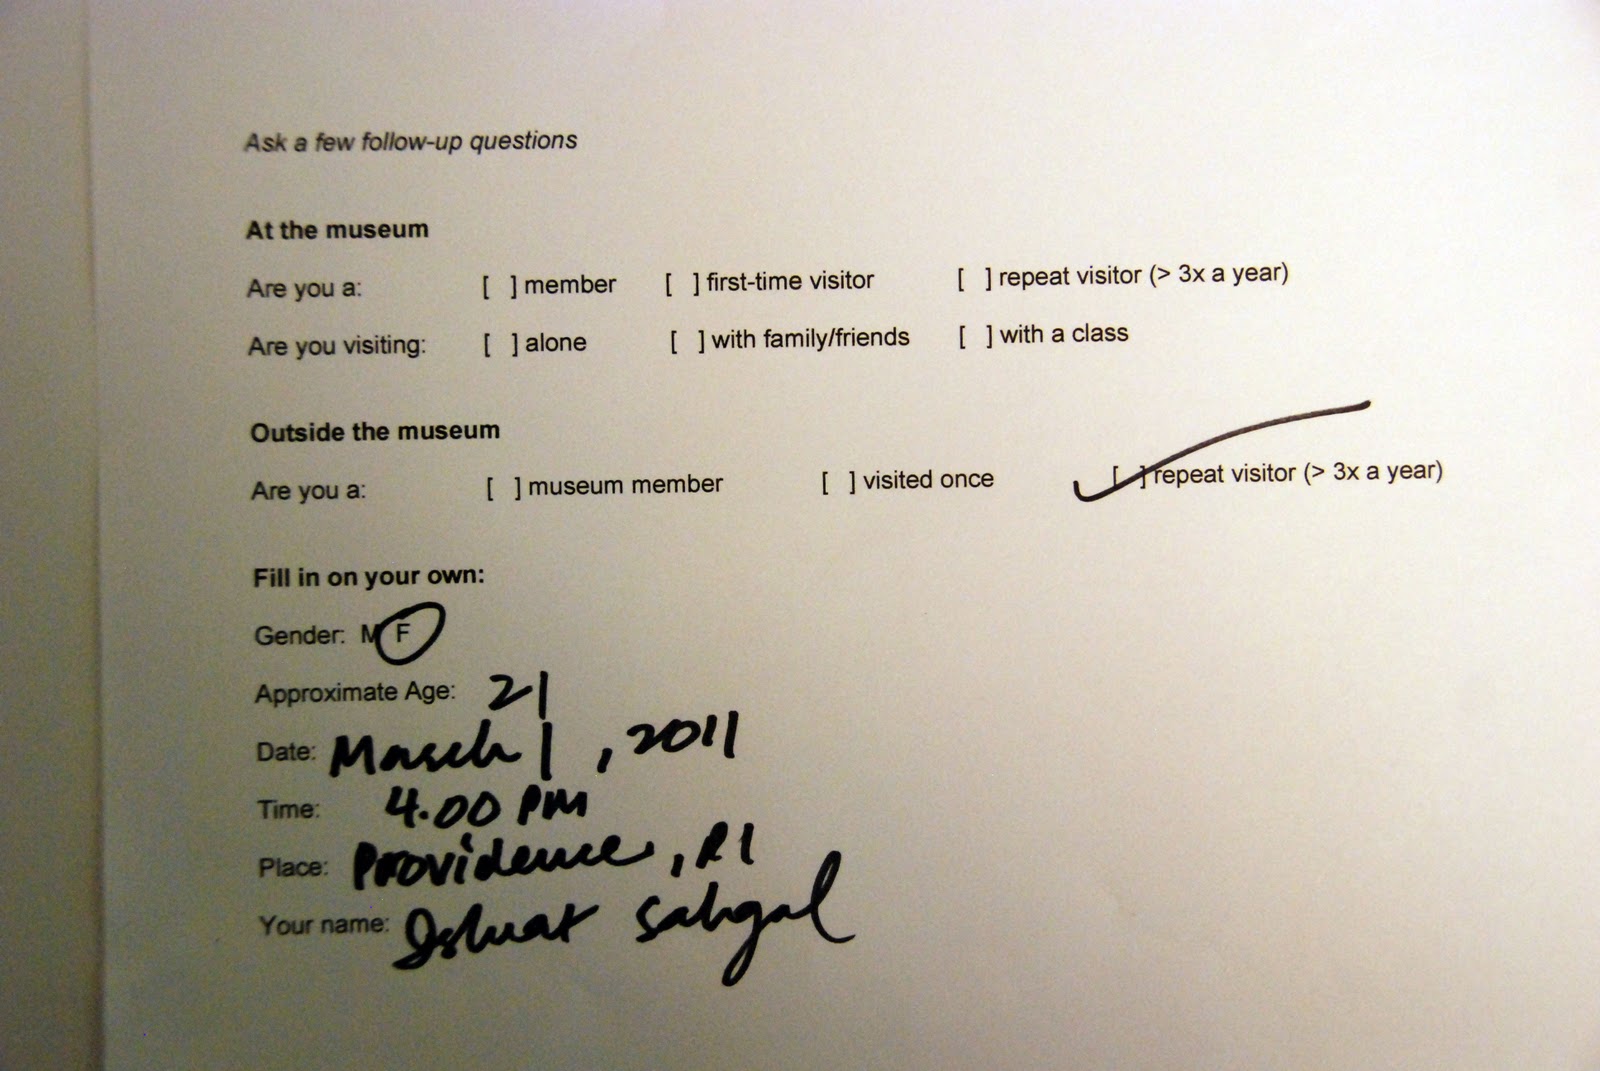 Ask a few follow-up questions
At the museum
Are you a: [ ] member [ ] first-time visitor [ ] repeat visitor (> 3x a year)
Are you visiting: [ ] alone [ ] with family/friends [ ] with a class
Outside the museum
Are you a: [ ] museum member [ ] visited once [ ] repeat visitor (> 3x a year)
Fill in on your own:
Gender: M F
Approximate Age: 21
Date: March 1, 2011
Time: 4.00 PM
Place: Providence, RI
Your name: Sahgal